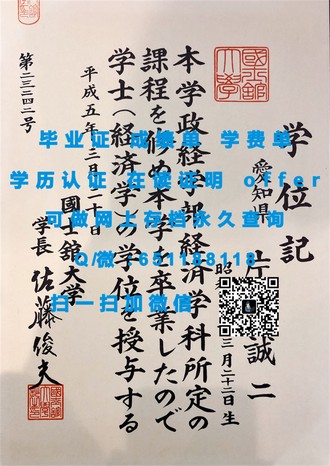 学位記
愛知県
片
誠二
昭
三月二十二日生
本学政経学部経済学科所定の
課程を修め本学を卒業したので
学士(経済学)の学位を授与する
平成五年三月二十日
國士舘大学
学長 佐藤俊夫
第二三四二号
毕业证 成绩单 学费单
学历认证 在读证明 offer
可做网上存档永久查询
Q/微:651188118
扫一扫加微信